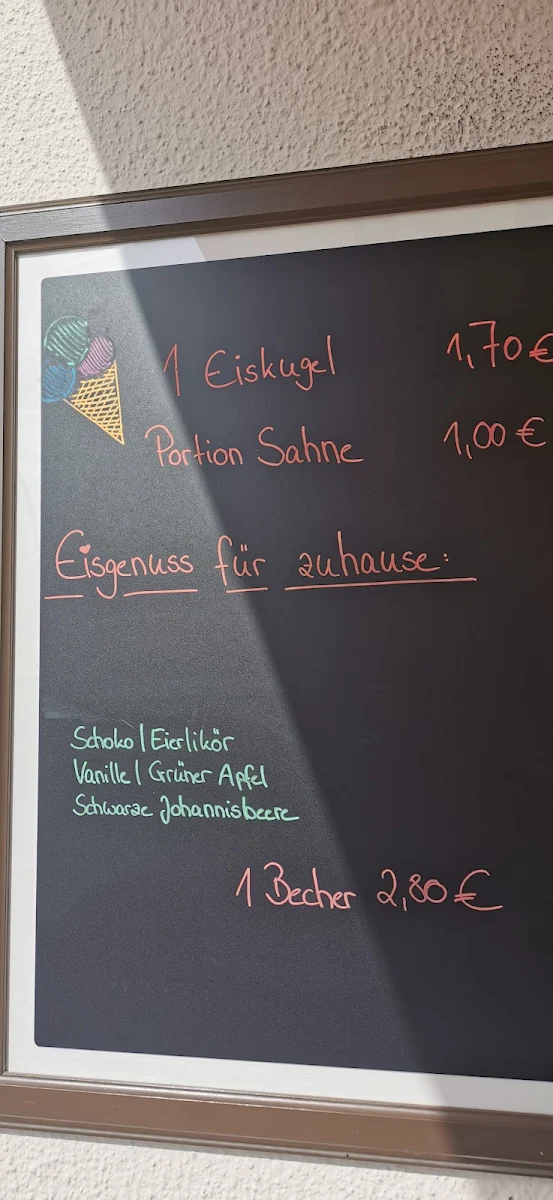 1 Eiskugel 1,70 €
Portion Sahne 1,00 €
Eisgenuss für zuhause:
Schoko | Eierlikör
Vanille | Grüner Apfel
Schwarze Johannisbeere
1 Becher 2,80 €